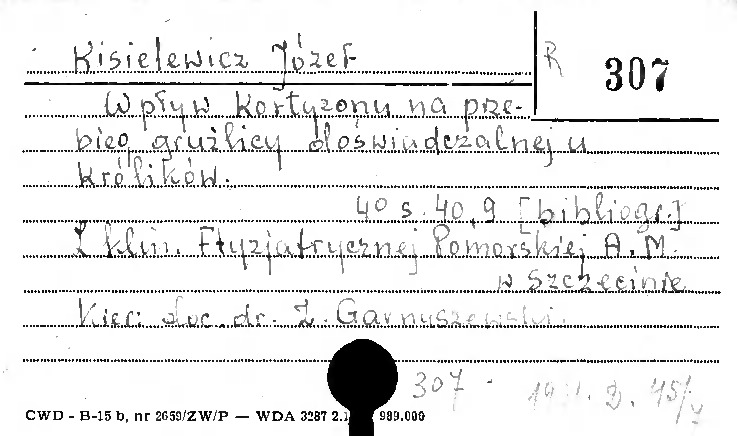 Kisielewicz Józef
R 307
Wpływ Kortyzonu na prze-
bieg gruźlicy doświadczalnej u
królików.
4° s. 40, 9 [bibliogr.]
Z klin. Ftyzjatrycznej Pomorskiej A.M.
w Szczecinie
Kier: doc. dr. Z. Garnuszewski.
307
CWD - B-15 b, nr 2659/ZW/P — WDA 3287 2. 989.000